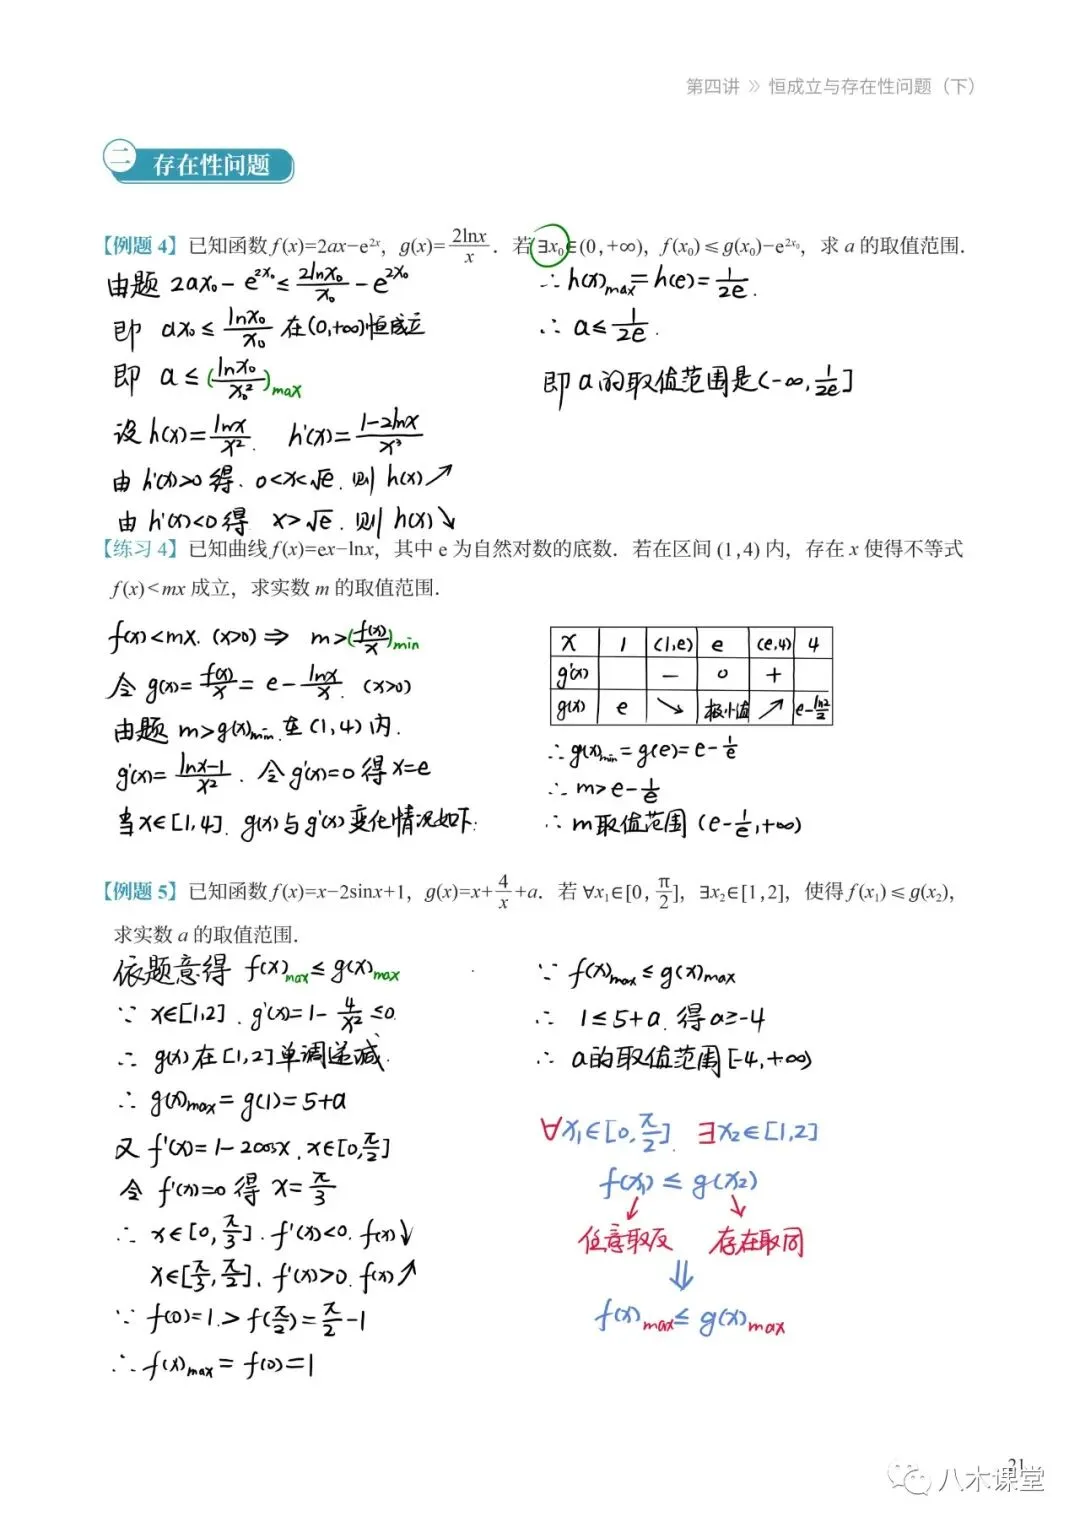 第四讲 》 恒成立与存在性问题（下）
二 存在性问题
【例题 4】已知函数 f(x)=2ax−e^{2x}，g(x)=\frac{2lnx}{x}．若 ∃x₀∈(0,+∞)，f(x₀)≤g(x₀)−e^{2x₀}，求 a 的取值范围．
由题 2ax₀−e^{2x₀}≤\frac{2lnx₀}{x₀}−e^{2x₀}
即 ax₀≤\frac{lnx₀}{x₀} 在(0,+∞)恒成立
即 a≤(\frac{lnx₀}{x₀²})max
设 h(x)=\frac{lnx}{x²}. h'(x)=\frac{1-2lnx}{x³}
由 h'(x)>0 得. 0<x<√e. 则 h(x)↗
由 h'(x)<0 得 x>√e. 则 h(x)↘
∴ h(x)max=h(e)=\frac{1}{2e}.
∴ a≤\frac{1}{2e}.
即 a的取值范围是(-∞,\frac{1}{2e}]
【练习 4】已知曲线 f(x)=ex−lnx，其中 e 为自然对数的底数．若在区间 (1,4) 内，存在 x 使得不等式
f(x)<mx 成立，求实数 m 的取值范围．
f(x)<mx. (x>0) ⇒ m>(\frac{f(x)}{x})min
令 g(x)=\frac{f(x)}{x}=e-\frac{lnx}{x}. (x>0)
由题 m>g(x)min. 在(1,4)内.
g'(x)=\frac{lnx-1}{x²}. 令g'(x)=0得x=e
当x∈[1,4]. g(x)与g'(x)变化情况如下:
x 1 (1,e) e (e,4) 4
g'(x) − 0 +
g(x) e ↘ 极小值 ↗ e-\frac{ln2}{2}
∴ g(x)min=g(e)=e-\frac{1}{e}
∴ m>e-\frac{1}{e}
∴ m取值范围 (e-\frac{1}{e},+∞)
【例题 5】已知函数 f(x)=x−2sinx+1，g(x)=x+\frac{4}{x}+a．若 ∀x₁∈[0,\frac{π}{2}]，∃x₂∈[1,2]，使得 f(x₁)≤g(x₂)，
求实数 a 的取值范围．
依题意得 f(x)max≤g(x)max
∵ x∈[1,2]. g'(x)=1-\frac{4}{x²}≤0.
∴ g(x)在[1,2]单调递减.
∴ g(x)max=g(1)=5+a
又 f'(x)=1-2cosx. x∈[0,\frac{π}{2}]
令 f'(x)=0 得 x=\frac{π}{3}
∴ x∈[0,\frac{π}{3}]. f'(x)<0. f(x)↓
x∈[\frac{π}{3},\frac{π}{2}]. f'(x)>0. f(x)↗
∵ f(0)=1.>f(\frac{π}{2})=\frac{π}{2}-1
∴ f(x)max=f(0)=1
∵ f(x)max≤g(x)max
∴ 1≤5+a. 得a≥-4
∴ a的取值范围[-4,+∞)
∀x₁∈[0,\frac{π}{2}]. ∃x₂∈[1,2]
f(x₁)≤g(x₂)
任意取反 存在取同
⇓
f(x)max≤g(x)max
21
八木课堂